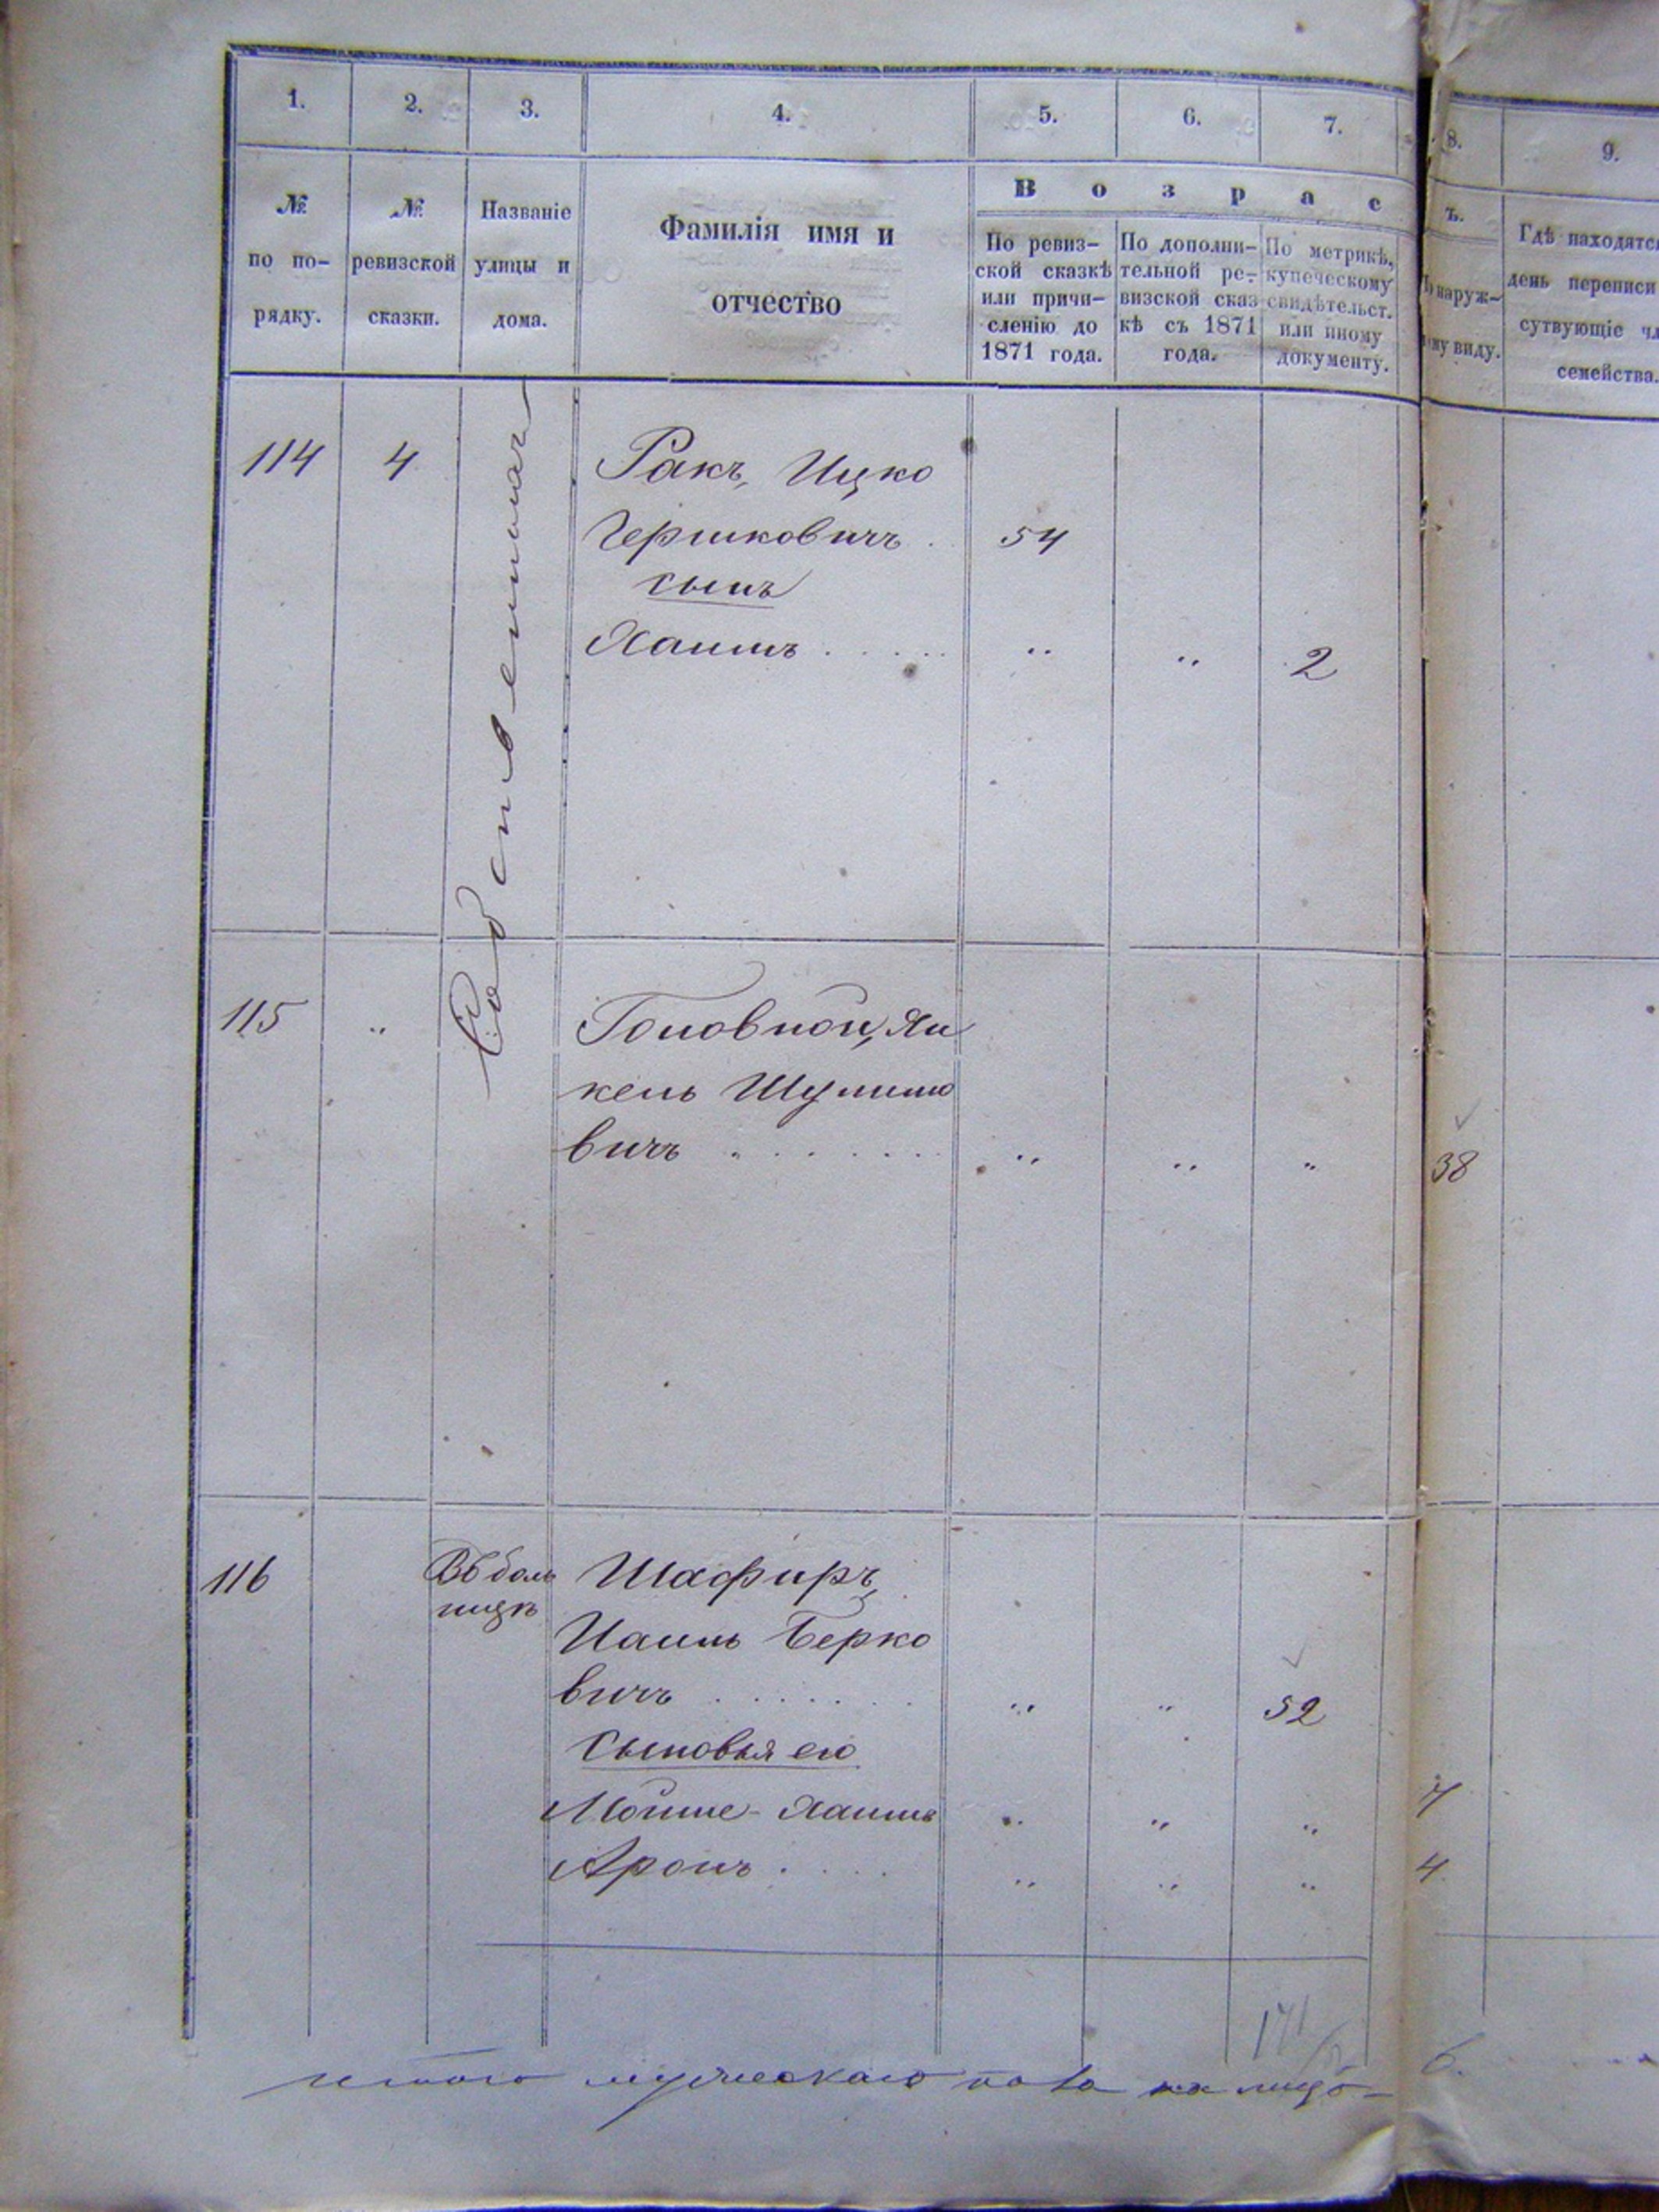 1. 2. 3. 4. 5. 6. 7. 8. 9.
№ по по-рядку.
№ ревизской сказки.
Названіе улицы и дома.
Фамилія имя и отчество
В о з р а с ъ.
По ревиз-
ской сказкѣ
или причи-
сленію до
1871 года.
По дополни-
тельной ре-
визской сказ
кѣ съ 1871
года.
По метрикѣ,
купеческому
свидѣтельст.
или иному
документу.
наруж-
виду.
Гдѣ находятс
день переписи
сутвующіе чл
семейства.
114 4 Ракъ, Ицко
Гершковичъ . 54
сынъ
Хаимъ . . . . . „ „ 2
115 „ Головной, Ян
кель Шулимо
вичъ . . . . . . „ „ „ 38
116 Въ боль Шафиръ,
ницѣ
Иаиль Берко
вичъ . . . . . . „ „ 52
Сыновья его
Мойше-Хаимъ „ „ „ 7
Аронъ . . . . „ „ „ 4
мужескаго пола на лицо- 6.